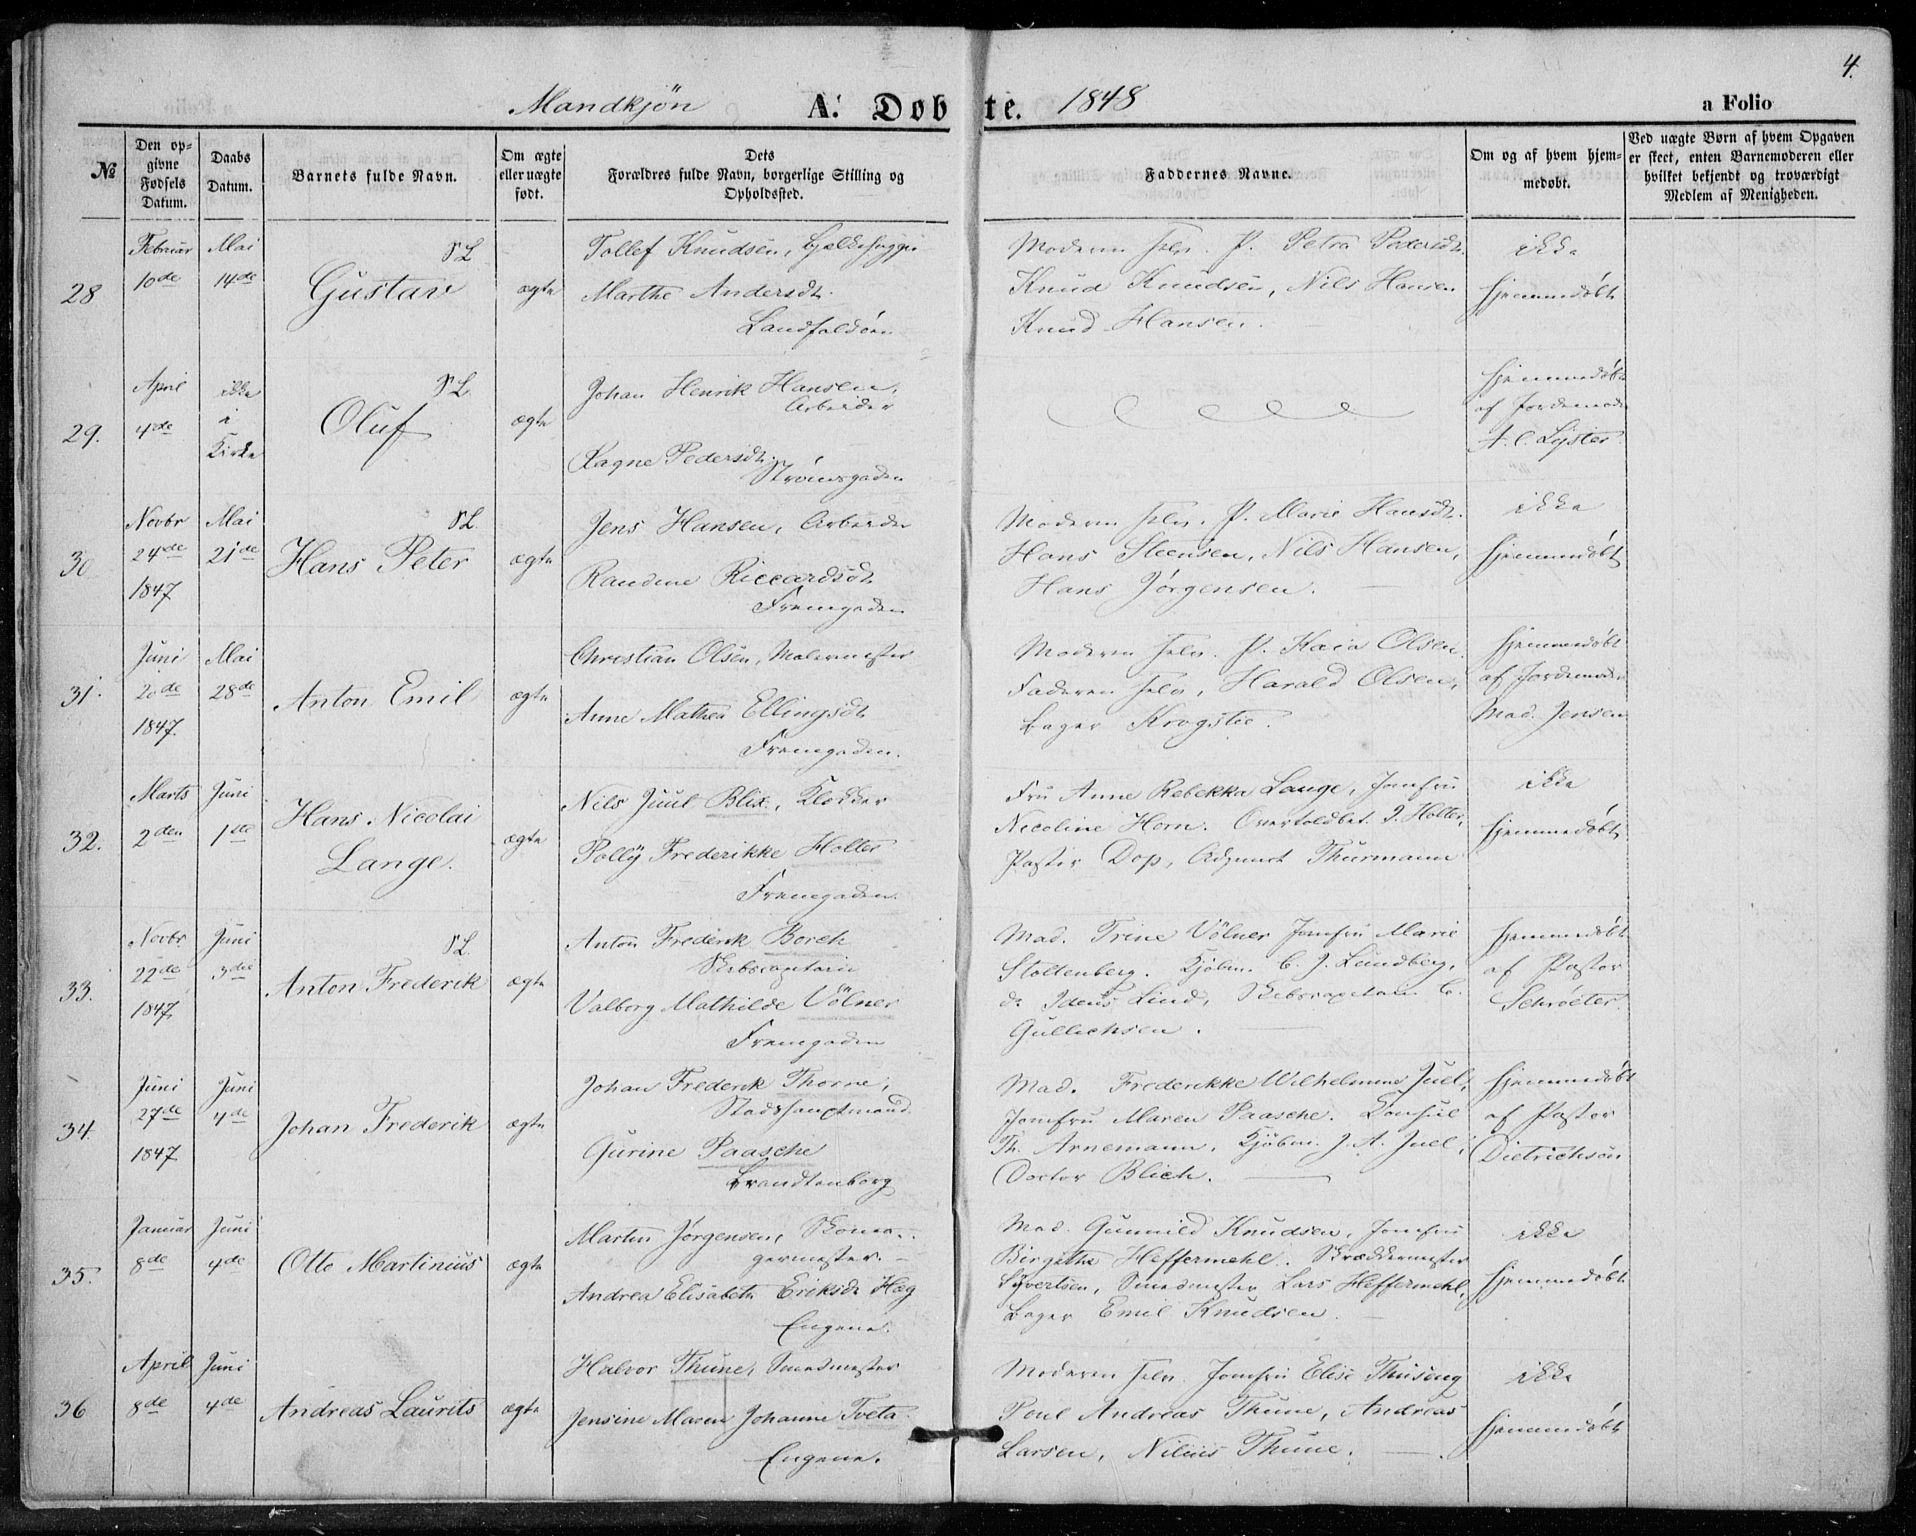 4.
Mandkjön A. Döbte. 1848 a Folio
№
Den opgivne Fødsels Datum.
Daabs Datum.
Barnets fulde Navn.
Om ægte eller uægte født.
Dets Forældres fulde Navn, borgerlige Stilling og Opholdssted.
Faddernes Navne.
Om og af hvem hjemmedøbt.
Ved uægte Børn af hvem Opgaven er skeet, enten Barnemoderen eller hvilket bekjendt og troværdigt Medlem af Menigheden.
28
Februar
10de
Mai
14de
SL
Gustav
ægte
Tollef Knudsen, Bjelkehugger
Marthe Andersdt.
Landfaldöen
Moderen selv. P. Petra Pedersdt.
Knud Knudsen, Nils Hansen
Knud Hansen.
ikke
hjemmedöbt
29.
April
4de
ikke
i
Kirke
SL
Oluf
ægte
Johan Henrik Hansen,
Arbeider
Ragne Pedersdt.
Strömsgaden
hjemmedöbt
af Jordemoder
A. C. Lyster
30
Novbr
24de
1847
Mai
21de
SL
Hans Peter
ægte
Jens Hansen, Arbeider
Randine Riccardsdt.
Fremgaden
Moderen selv. P. Marie Hansdt.
Hans Steensen, Nils Hansen,
Hans Jørgensen.
ikke
hjemmedöbt
31.
Juni
20de
1847.
Mai
28de
Anton Emil
ægte
Christian Olsen, Malermester
Anne Mathea Ellingsdt.
Fremgaden.
Moderen selv. P. Kaia Olsen
Faderen selv, Harald Olsen,
Bager Krogstie.
hjemmedöbt
af Jordemoder
Mad. Jensen
32.
Marts
2den
Juni
1ste
Hans Nicolai
Lange.
ægte
Nils Juul Blix, Klokker
Polly Frederikke Holter
Fremgaden.
Fru Anne Rebekka Lange, Jomfru
Nicoline Horn. Overtoldbet. J. Holter,
Pastor Dop, Adjunct Thurmann
ikke
hjemmedöbt
33.
Novbr
22de
1847
Juni
3die
SL.
Anton Frederik
ægte
Anton Frederik Borch
Skibscaptain
Valborg Mathilde Völner
Fremgaden
Mad. Trine Völner Jomfru Marie
Stoltenberg. Kjöbm. C. J. Lundberg,
do Idens Lind, Skibscaptain C.
Gullichsen.
hjemmedöbt
af Pastor
Schröeter.
34.
Juni
27de
1847
Juni
4de
Johan Frederik
ægte
Johan Frederik Thorne,
Stadshauptmand
Gurine Paasche
Brandtenborg
Mad. Frederikke Wilhelmine Juel,
Jomfru Maren Paasche. Konsul
Th. Arnemann, Kjöbm. J. A. Juel,
Doctor Blich.
hjemmedöbt
af Pastor
Dietrichson
35.
Januar
8de
Juni
4de
Otto Martinius
ægte
Martin Jørgensen, Skoma-
germester.
Andrea Elisabeth Eriksdt Hæg
Engene.
Mad. Gunnild Knudsen, Jomfru
Birgitha Heffermehl. Skræddermester
Syvertsen, Smedmester Lars Heffermehl,
Bager Emil Knudsen.
ikke
hjemmedöbt
36
April
8de
Juni
4de
Andreas Laurits
ægte
Halvor Thune, Smedmester
Jensine Maren Johanne Tveta.
Engene.
Moderen selv. Jomfru Elise Thuseng
Poul Andreas Thune, Andreas
Larsen, Nilius Thune.
ikke
hjemmedöbt